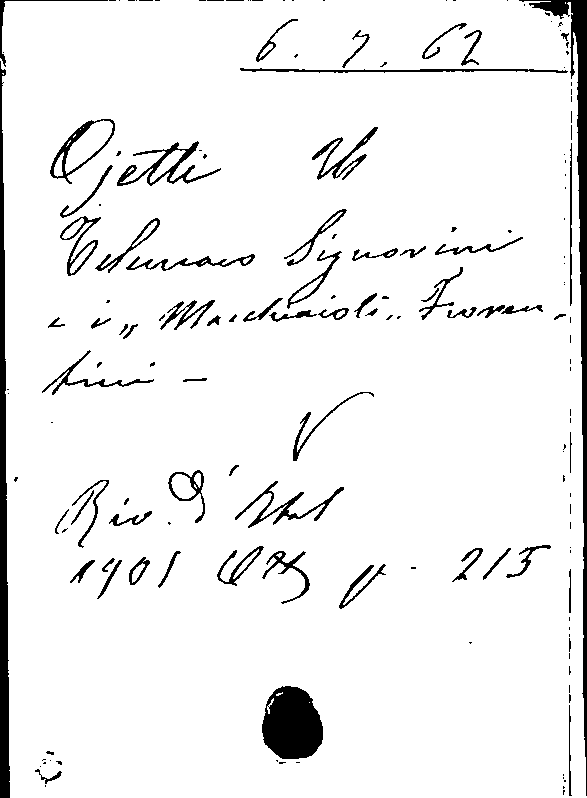 6. 7. 62
Ojetti U
Telemaco Signorini
e i „ Macchiaioli „ Fioren-
tini -
V
Riv. d' Ital
1901 Ott p. 215